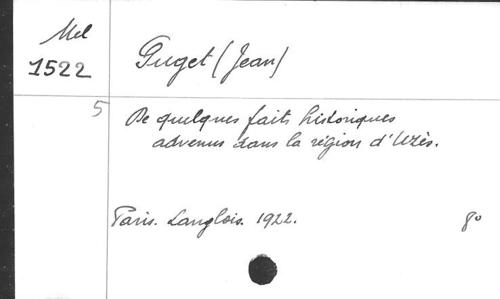 Mel
1522
Puget (Jean)
5
De quelques faits historiques
advenus dans la région d'Uzès.
Paris. Langlois. 1922.
8°